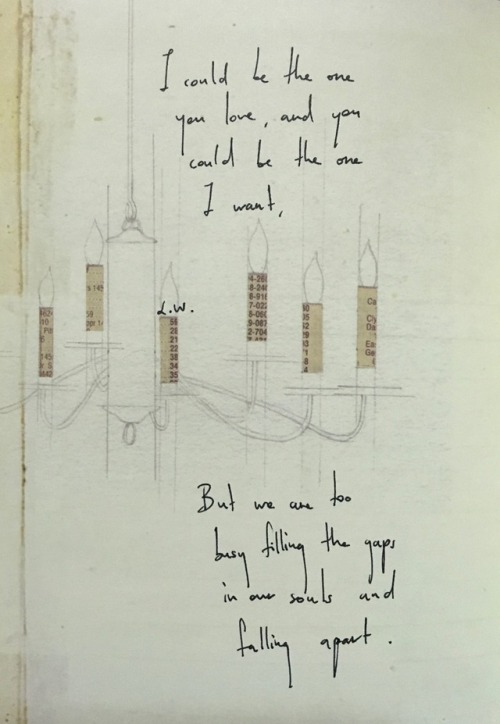 I could be the one
you love, and you
could be the one
I want,
s 145
59
L.W.
28
21
22
38
34
35
Ca
Da
But we are too
busy filling the gaps
in our souls and
falling apart.